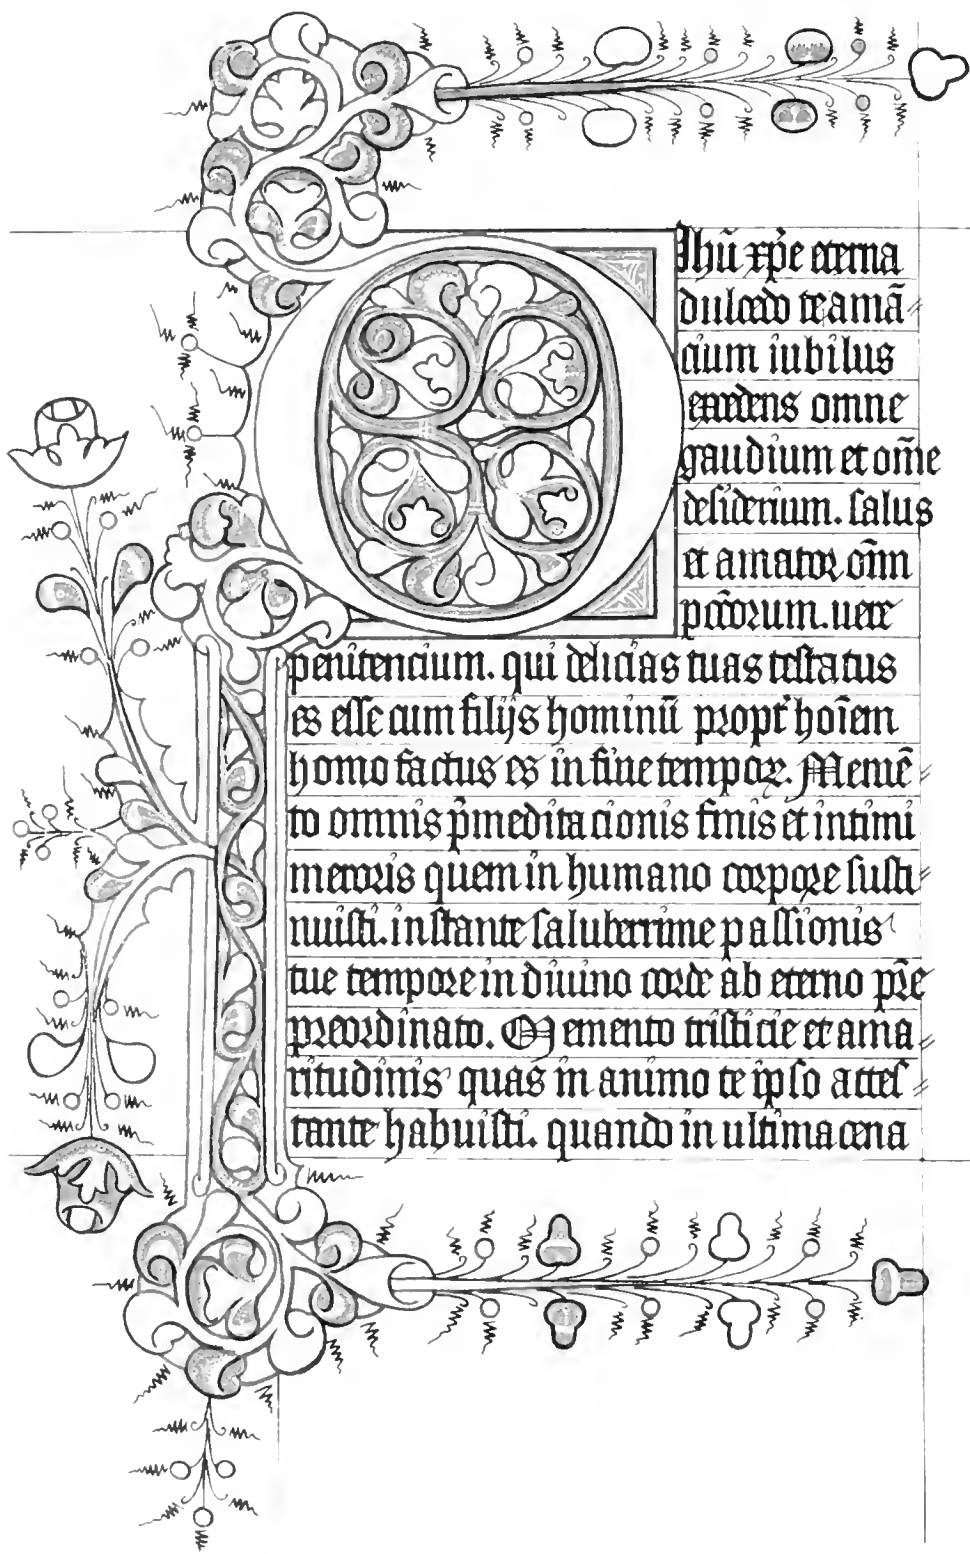 O Jhū xp̄e eterna
dulcedo te amā
cium iubilus
excedens omne
gaudium et om̄e
desiderium. salus
et amator om̄n
pc̄torum. uere
penitencium. qui delicias tuas testatus
es esse cum filijs hominū propt hoīem
homo factus es in fine tempoꝝ. Memē
to omnis p̄meditacionis finis et intimi
meroris quem in humano corpore susti
nuisti. instante saluberrime passionis
tue tempore in diuino corde ab eterno p̄re
preordinato. Memento tristicie et ama
ritudinis quas in animo te ipso attes
tante habuisti. quando in ultima cena